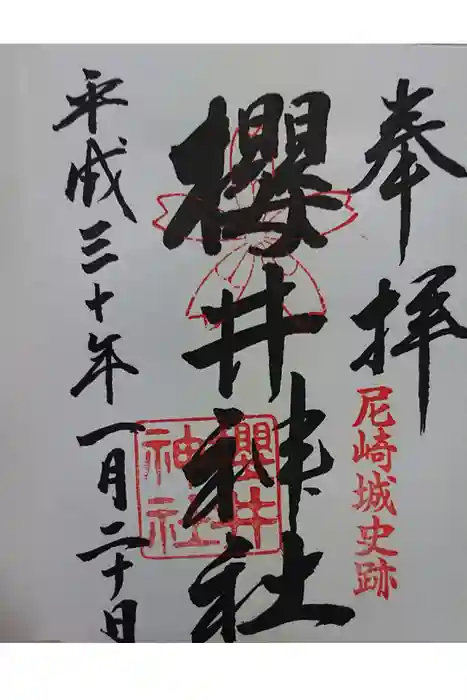 奉拝
尼崎城史跡
櫻井神社
櫻井
神社
平成三十年一月二十日